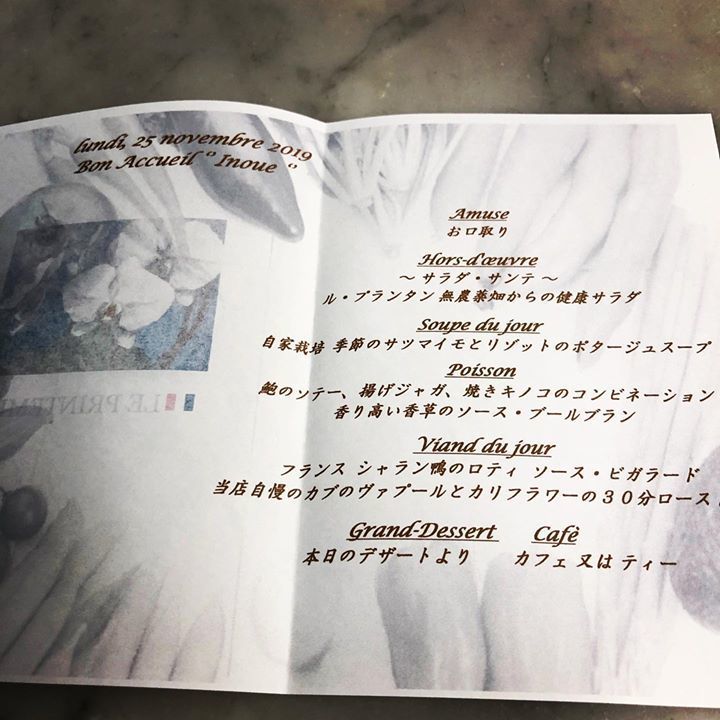 lundi, 25 novembre 2019
Bon Accueil " Inoue "
LE PRINTEM
Amuse
お口取り
Hors-d'œuvre
～ サラダ・サンテ ～
ル・プランタン 無農薬畑からの健康サラダ
Soupe du jour
自家栽培 季節のサツマイモとリゾットのポタージュスープ
Poisson
鮑のソテー、揚げジャガ、焼きキノコのコンビネーション
香り高い香草のソース・ブールブラン
Viand du jour
フランス シャラン鴨のロティ ソース・ビガラード
当店自慢のカブのヴァプールとカリフラワーの３０分ロース
Grand-Dessert Cafè
本日のデザートより カフェ 又は ティー